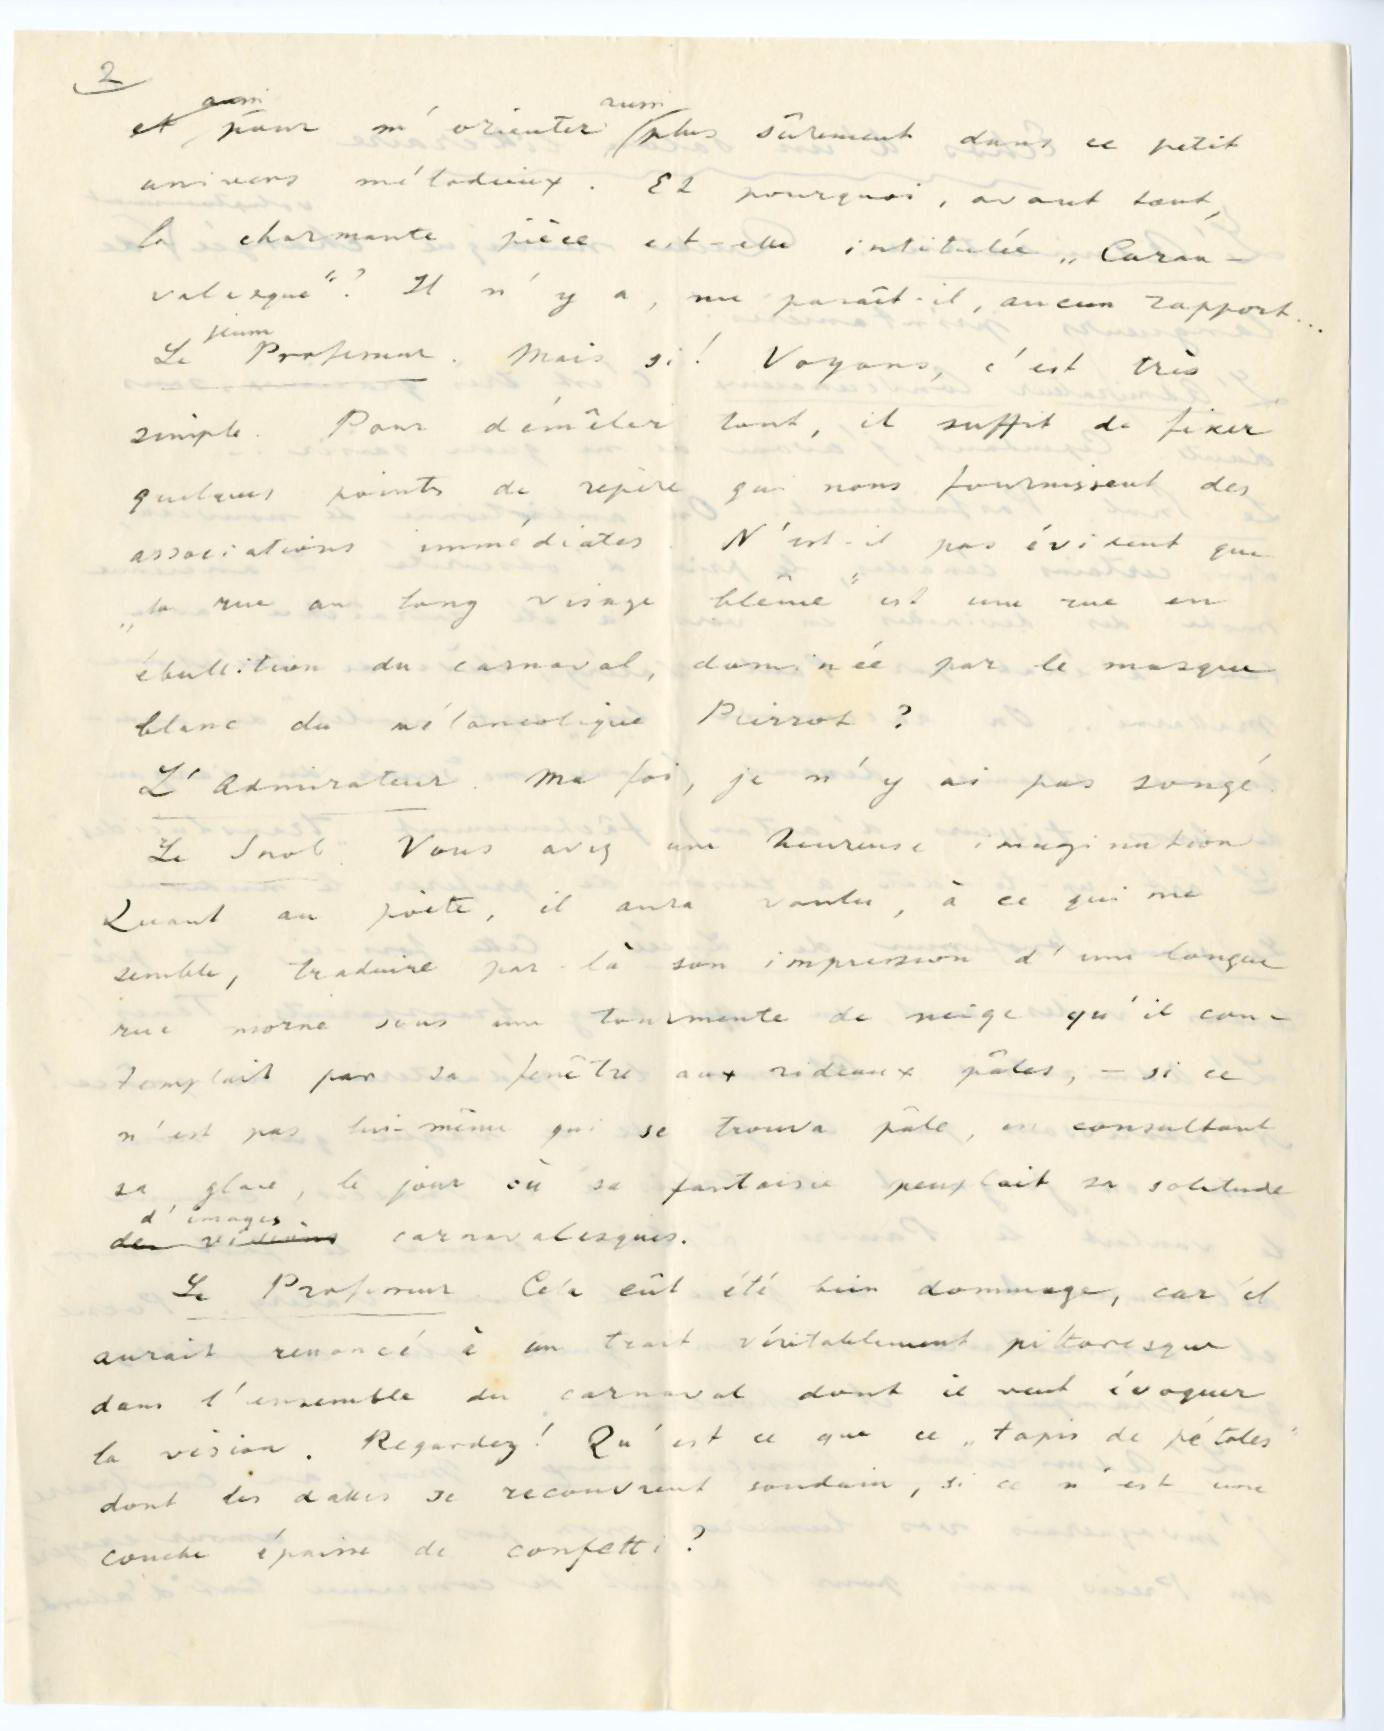 2
aussi aussi
et pour m'orienter plus sûrement dans ce petit
univers mélodieux. Et pourquoi, avant tout,
la charmante pièce est-elle intitulée „Carna-
valesque"? Il n'y a, me paraît-il, aucun rapport...
jeune
Le Professeur. Mais si! Voyons, c'est très
simple. Pour démêler tout, il suffit de fixer
quelques points de repère qui nous fournissent des
associations immédiates. N'est-il pas évident que
„la rue au long visage blême" est une rue en
ébullition du carnaval, dominée par le masque
blanc du mélancolique Pierrot?
L'Admirateur. Ma foi, je n'y ai pas songé.
Le Snob. Vous avez une heureuse imagination
Quant au poète, il aura voulu, à ce qui me
semble, traduire par là son impression d'une longue
rue morne sous une tourmente de neige qu'il con-
templait par sa fenêtre aux rideaux pâles, – si ce
n'est pas lui-même qui se trouva pâle, en consultant
sa glace, le jour où sa fantaisie peuplait sa solitude
d'images
des visions carnavalesques.
Le Professeur. Cela eût été bien dommage, car il
aurait renoncé à un trait véritablement pittoresque
dans l'ensemble du carnaval dont il veut évoquer
la vision. Regardez! Qu'est ce que ce „tapis de pétales"
dont les dalles se recouvrent soudain, si ce n'est une
couche épaisse de confetti?